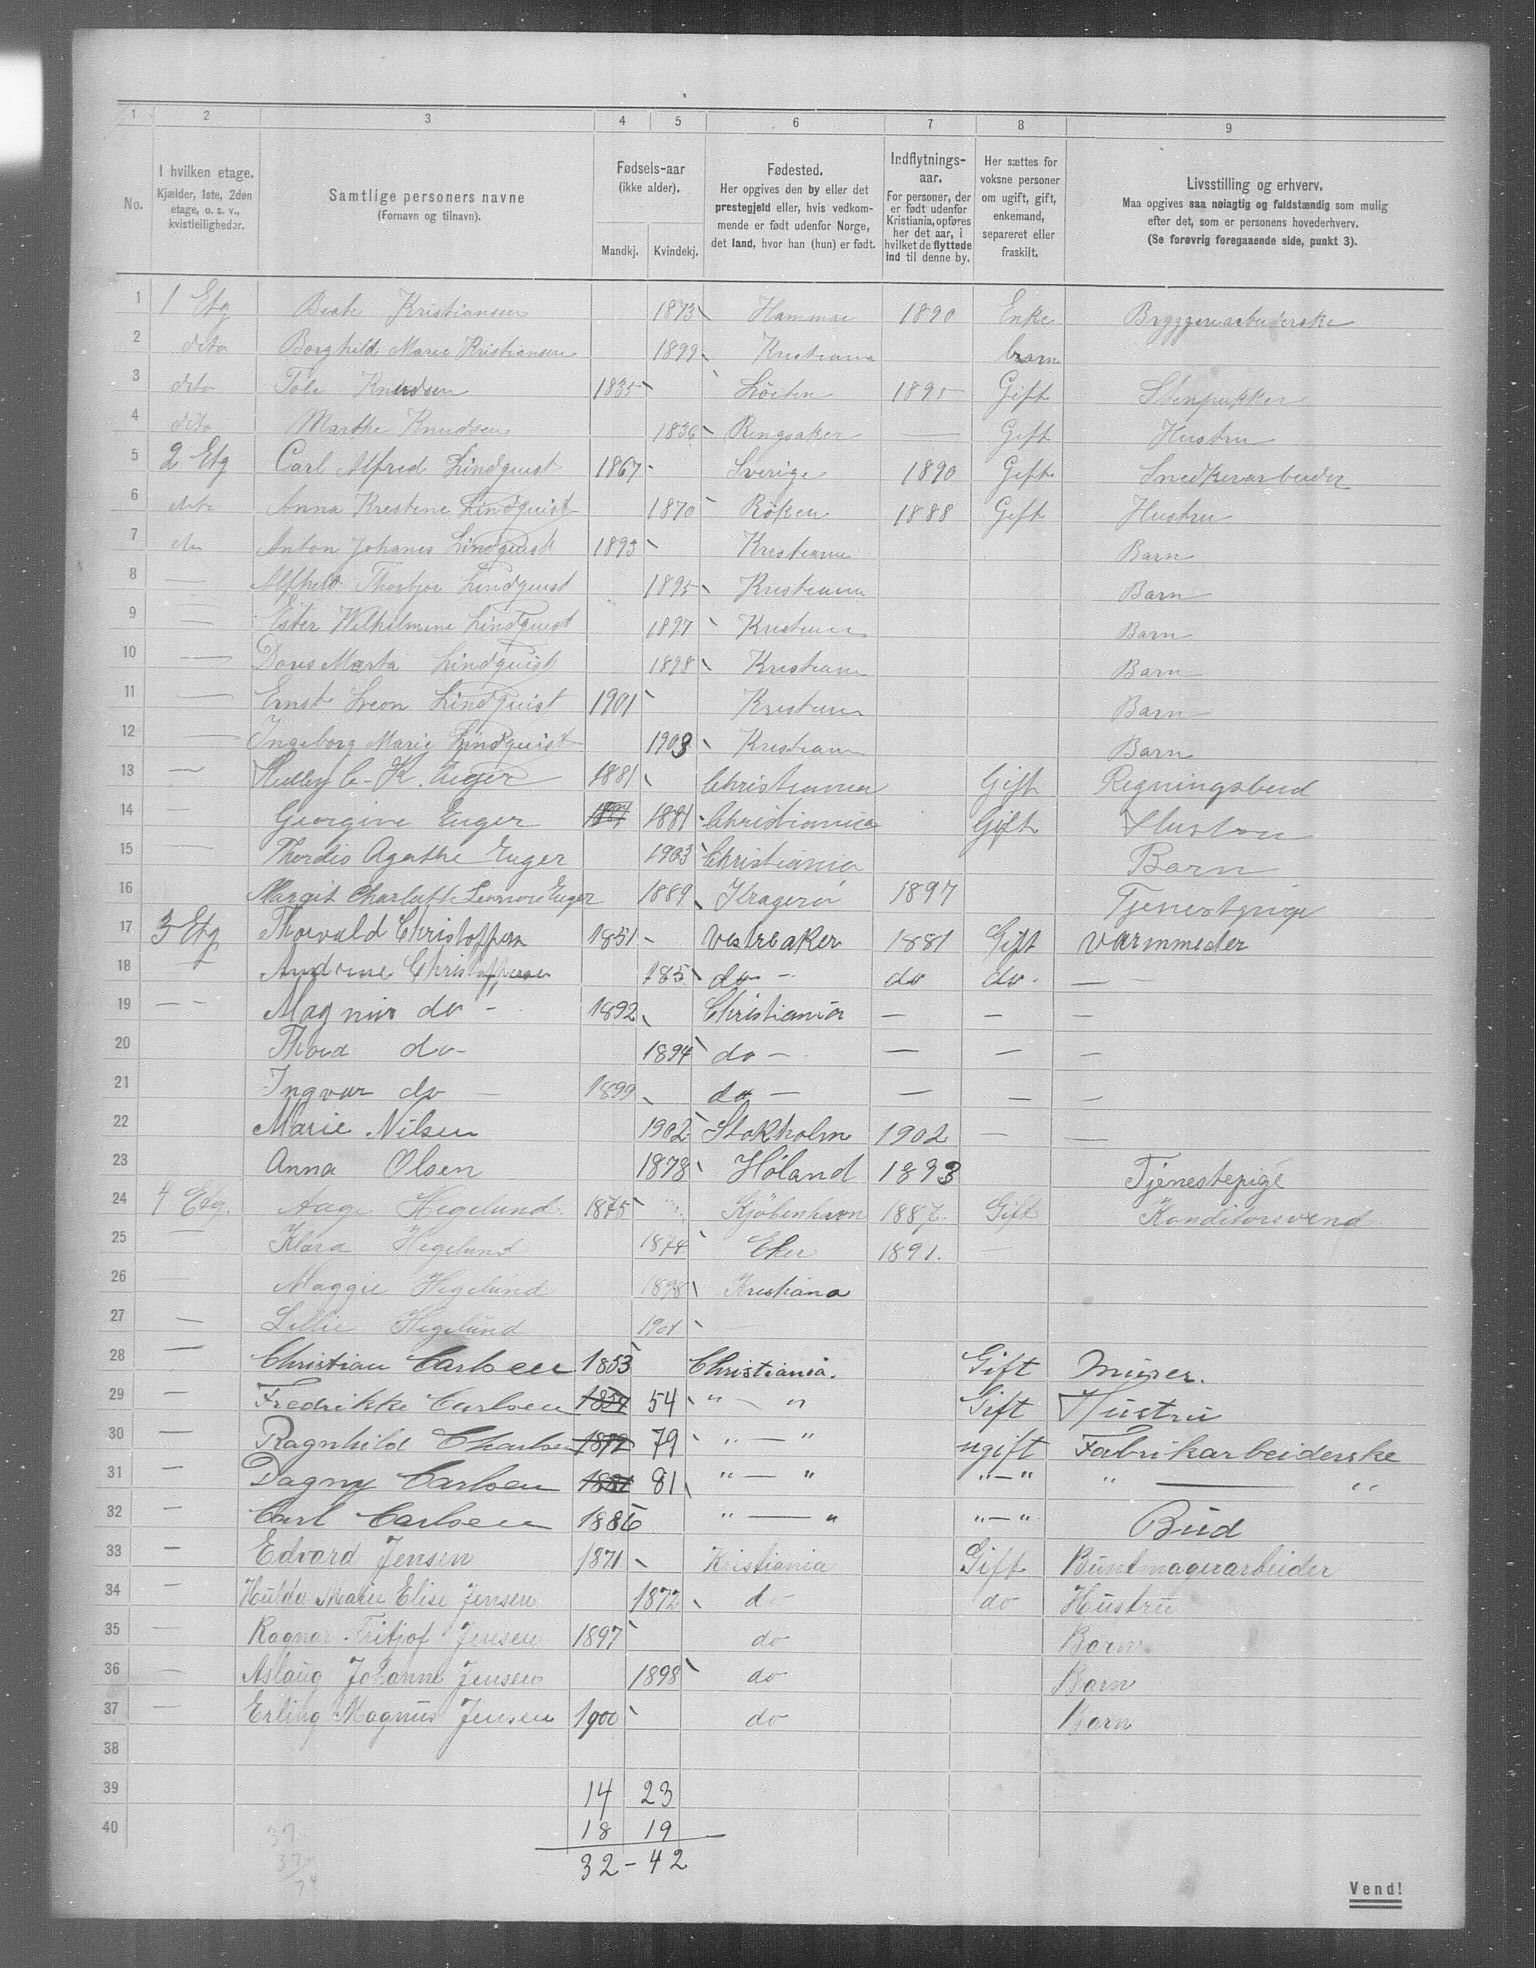 1 2 3 4 5 6 7 8 9
No.
I hvilken etage.
Kjælder, 1ste, 2den
etage, o. s. v.,
kvistleiligheder.
Samtlige personers navne
(Fornavn og tilnavn).
Fødsels-aar
(ikke alder).
Mandkj. Kvindekj.
Fødested.
Her opgives den by eller det
prestegjeld eller, hvis vedkom-
mende er født udenfor Norge,
det land, hvor han (hun) er født.
Indflytnings-
aar.
For personer, der
er født udenfor
Kristiania, opføres
her det aar, i
hvilket de flyttede
ind til denne by.
Her sættes for
voksne personer
om ugift, gift,
enkemand,
separeret eller
fraskilt.
Livsstilling og erhverv.
Maa opgives saa nøiagtig og fuldstændig som mulig
efter det, som er personens hovederhverv.
(Se forøvrig foregaaende side, punkt 3).
1 1 Etg Beate Kristiansen 1873 1890 Enke Bryggeriarbeiderske
2 dito Borghild Marie Kristiansen 1899 Kristiania barn
3 dito Knudsen 1835 Löiten 1895 Gift Stenpukker
4 dito Marthe Knudsen 1836 Ringsaker — Gift Hustru
5 2 Etg Carl Alfred Lindquist 1867 Sverige 1890 Gift Snedkerarbeider
6 dito Anna Kristine Lindquist 1870 Röken 1888 Gift Hustru
7 Anton Johanes Lindquist 1893 Kristiania Barn
8 — Alfhild Thorbjor Lindquist 1895 Kristiania Barn
9 — Ester Wilhelmine Lindquist 1897 Kristiania Barn
10 — Doris Marta Lindquist 1898 Kristiania Barn
11 — Ernst Leon Lindquist 1901 Kristiania Barn
12 — Ingeborg Marie Lindquist 1903 Kristiania Barn
13 — C. K. Euger 1881 Christiania Gift Regningsbud
14 — Georgine Euger 1881 Christiania Gift Hustru
15 — Thordis Agathe Euger 1903 Christiania Barn
16 Margit Charlotte Leonore Euger 1889 Kragerø 1897 Tjenestpige
17 3 Etg Thorvald Christoffersen 1851 Vestreaker 1881 Gift Varmmeder
18 — Andrine Christoffersen 185 do — do do. —
19 — — Magnus do — 1892 Christiania — — —
20 Thora do — 1894 do — — — —
21 Ingvar do — 1899 do — — — —
22 Marie Nilsen 1902 Stokholm 1902 — —
23 Anna Olsen 1878 Höland 1893 Tjenestepige
24 4 Etg. Aage Hegelund 1875 Kjöbenhavn 1887. Gift Konditorsvend
25 — Klara Hegelund 1874 Eker 1891. —
26 — Maggie Hegelund 1898 Kristiana
27 — Lillie Hegelund 1901 —
28 — Christian Carlsen 1853 Christiania. Gift Murer.
29 — Fredrikke Carlsen 1854 54 " — " Gift Hustru
30 — Ragnhild Charlsen 1879 79 " — " ugift Fabrikarbeiderske
31 — Dagny Carlsen 1881 81 " — " " — " " — "
32 — Carl Carlsen 1886 " — " " — " Bud
33 — Edvard Jensen 1871 Kristiania Gift Buntmagerarbeider
34 — Hulda Marie Elise Jensen 1872 do do Hustru
35 — Ragnar Fritjof Jensen 1897 do Barn
36 — Aslaug Johanne Jensen 1898 do Barn
37 — Erling Magnus Jensen 1900 do Barn
38
39 14 23
40 18 19
32 – 42
37
37
74
Vend!